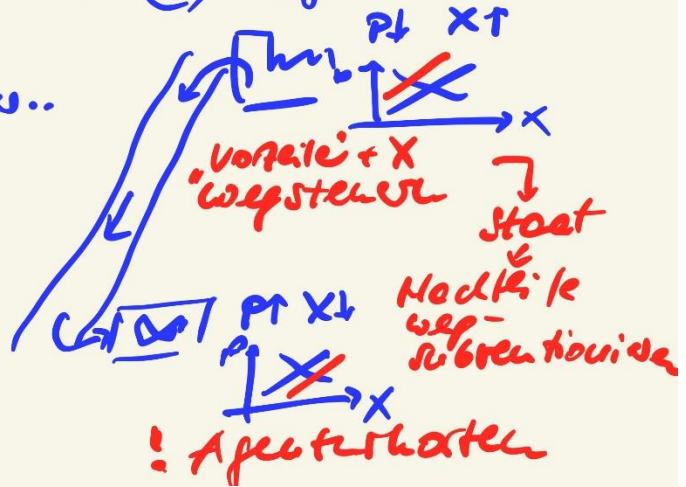 P↓ X↑
X
"Vorteile" + X
wegsteuern
Staat
Nachteile
weg-
subventionieren
P↑ X↓
P
X
! Agenturkosten